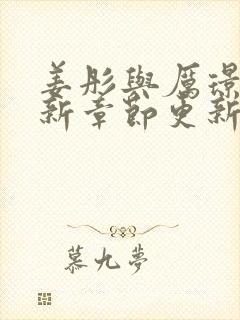 姜彤與厲璟
新章節更新
慕九夢